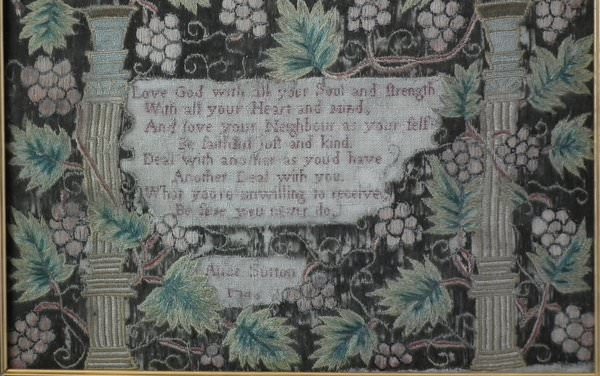 Love God with all your Soul and strength
With all your Heart and mind,
And love your Neighbour as your self
Be faithful just and kind.
Deal with another as you'd have
Another Deal with you.
What you're unwilling to receive
Be sure you never do.
Alice Sutton